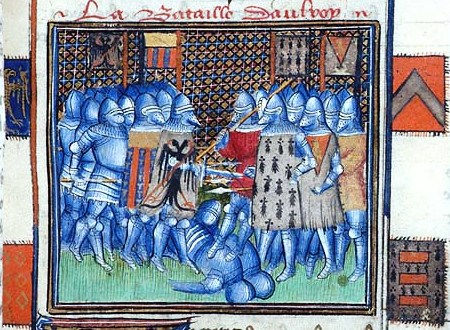 La Bataille Daulroy